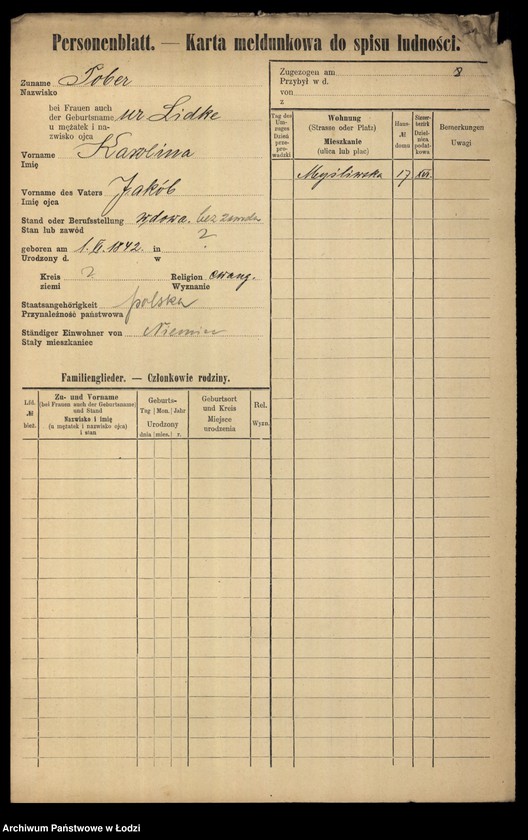 Personenblatt. — Karta meldunkowa do spisu ludności.
Zuname Tober
Nazwisko
bei Frauen auch
der Geburtsname ur Lidke
u mężatek i na-
zwisko ojca
Vorname Karolina
Imię
Vorname des Vaters Jakób
Imię ojca
Stand oder Berufsstellung wdowa. bez zawodu
Stan lub zawód
geboren am 1. VI. 1842. in ?
Urodzony d. w
Kreis ? Religion ewang.
ziemi Wyznanie
Staatsangehörigkeit polska
Przynależność państwowa
Ständiger Einwohner von Niemiec
Stały mieszkaniec
Familienglieder. — Członkowie rodziny.
Lfd. № bież.
Zu- und Vorname
(bei Frauen auch der Geburtsname)
und Stand
Nazwisko i imię
(u mężatek i nazwisko ojca)
i stan
Geburts-
Tag Mon. Jahr
Urodzony
dnia mies. r.
Geburtsort
und Kreis
Miejsce
urodzenia
Rel.
Wyzn.
Zugezogen am 8
Przybył w d.
von
z
Tag des
Um-
zuges
Dzień
prze-
prowadzki
Wohnung
(Strasse oder Platz)
Mieszkanie
(ulica lub plac)
Haus-
№
domu
Steuer-
bezirk
Dziel-
nica
podat-
kowa
Bemerkungen
Uwagi
Myśliwska 17 XVI.
Archiwum Państwowe w Łodzi